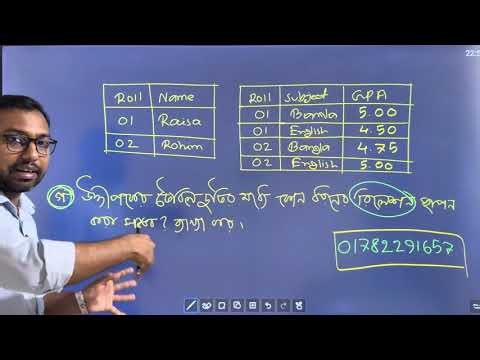 22:5
Roll Name
01 Raisa
02 Rohim
Roll Subject GPA
01 Bangla 5.00
01 English 4.50
02 Bangla 4.75
02 English 5.00
গ) উদ্দীপকের টেবিল দুটির মধ্যে কোন ধরনের রিলেশন স্থাপন
করা সম্ভব? ব্যাখ্যা কর।
01782291657